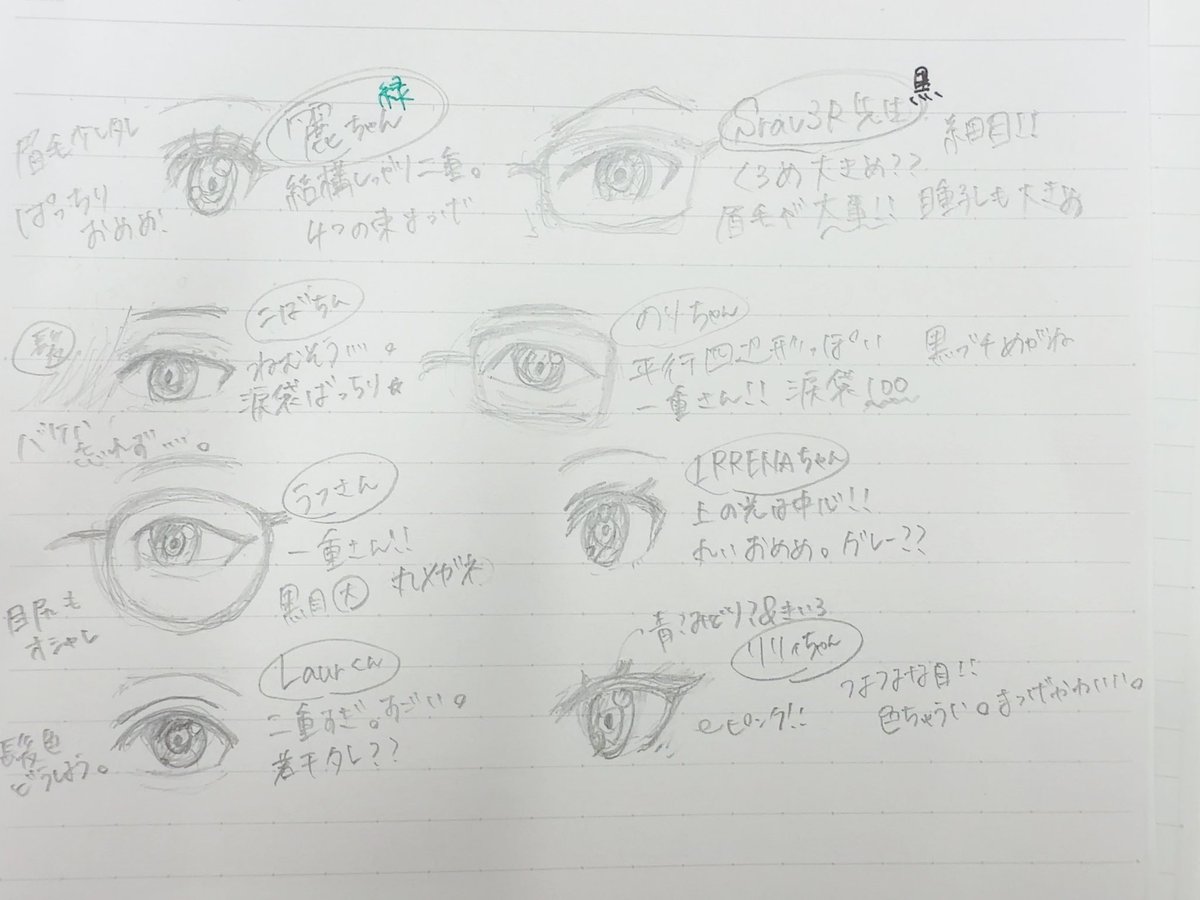 緑
麗ちゃん
眉毛少しタレ
ぱっちり
おめめ!
結構しっかり二重。
4つの束まつげ
黒
先生
細目!!
くろめ大きめ??
眉毛が大事!! 瞳孔も大きめ
こばちゃん
髪
ねむそう….。
涙袋ばっちり☆
のりちゃん
平行四辺形っぽい
黒ブチめがね
一重さん!! 涙袋100
うつさん
一重さん!!
黒目大 丸メガネ
目尻も
オシャレ
IRRENAちゃん
上の光は中心!!
丸いおめめ。グレー??
Laurくん
二重すぎ。すごい。
若干タレ??
髪色
どうしよう。
青?みどり?&きいろ
リリィちゃん
eピンク!!
つよつよな目!!
色ちゃうい。まつげかわいい。